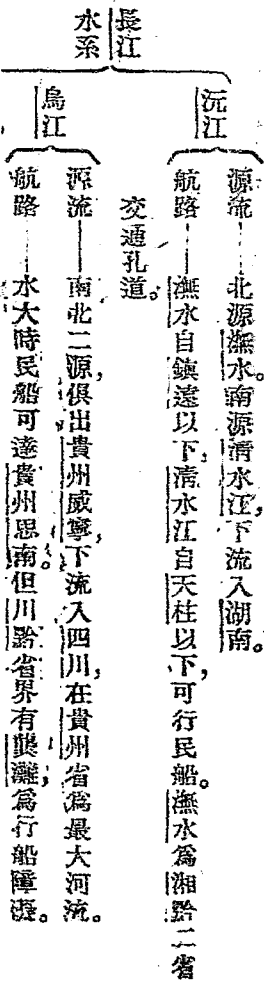 長江
水系
沅江
源流——北源㵲水。南源清水江，下流入湖南。
航路——㵲水自鎮遠以下，清水江自天柱以下，可行民船。㵲水爲湘黔二省
交通孔道。
烏江
源流——南北二源，俱出貴州威寧，下流入四川，在貴州省爲最大河流。
航路——水大時民船可達貴州思南。但川黔省界有龔灘，爲行船障礙。